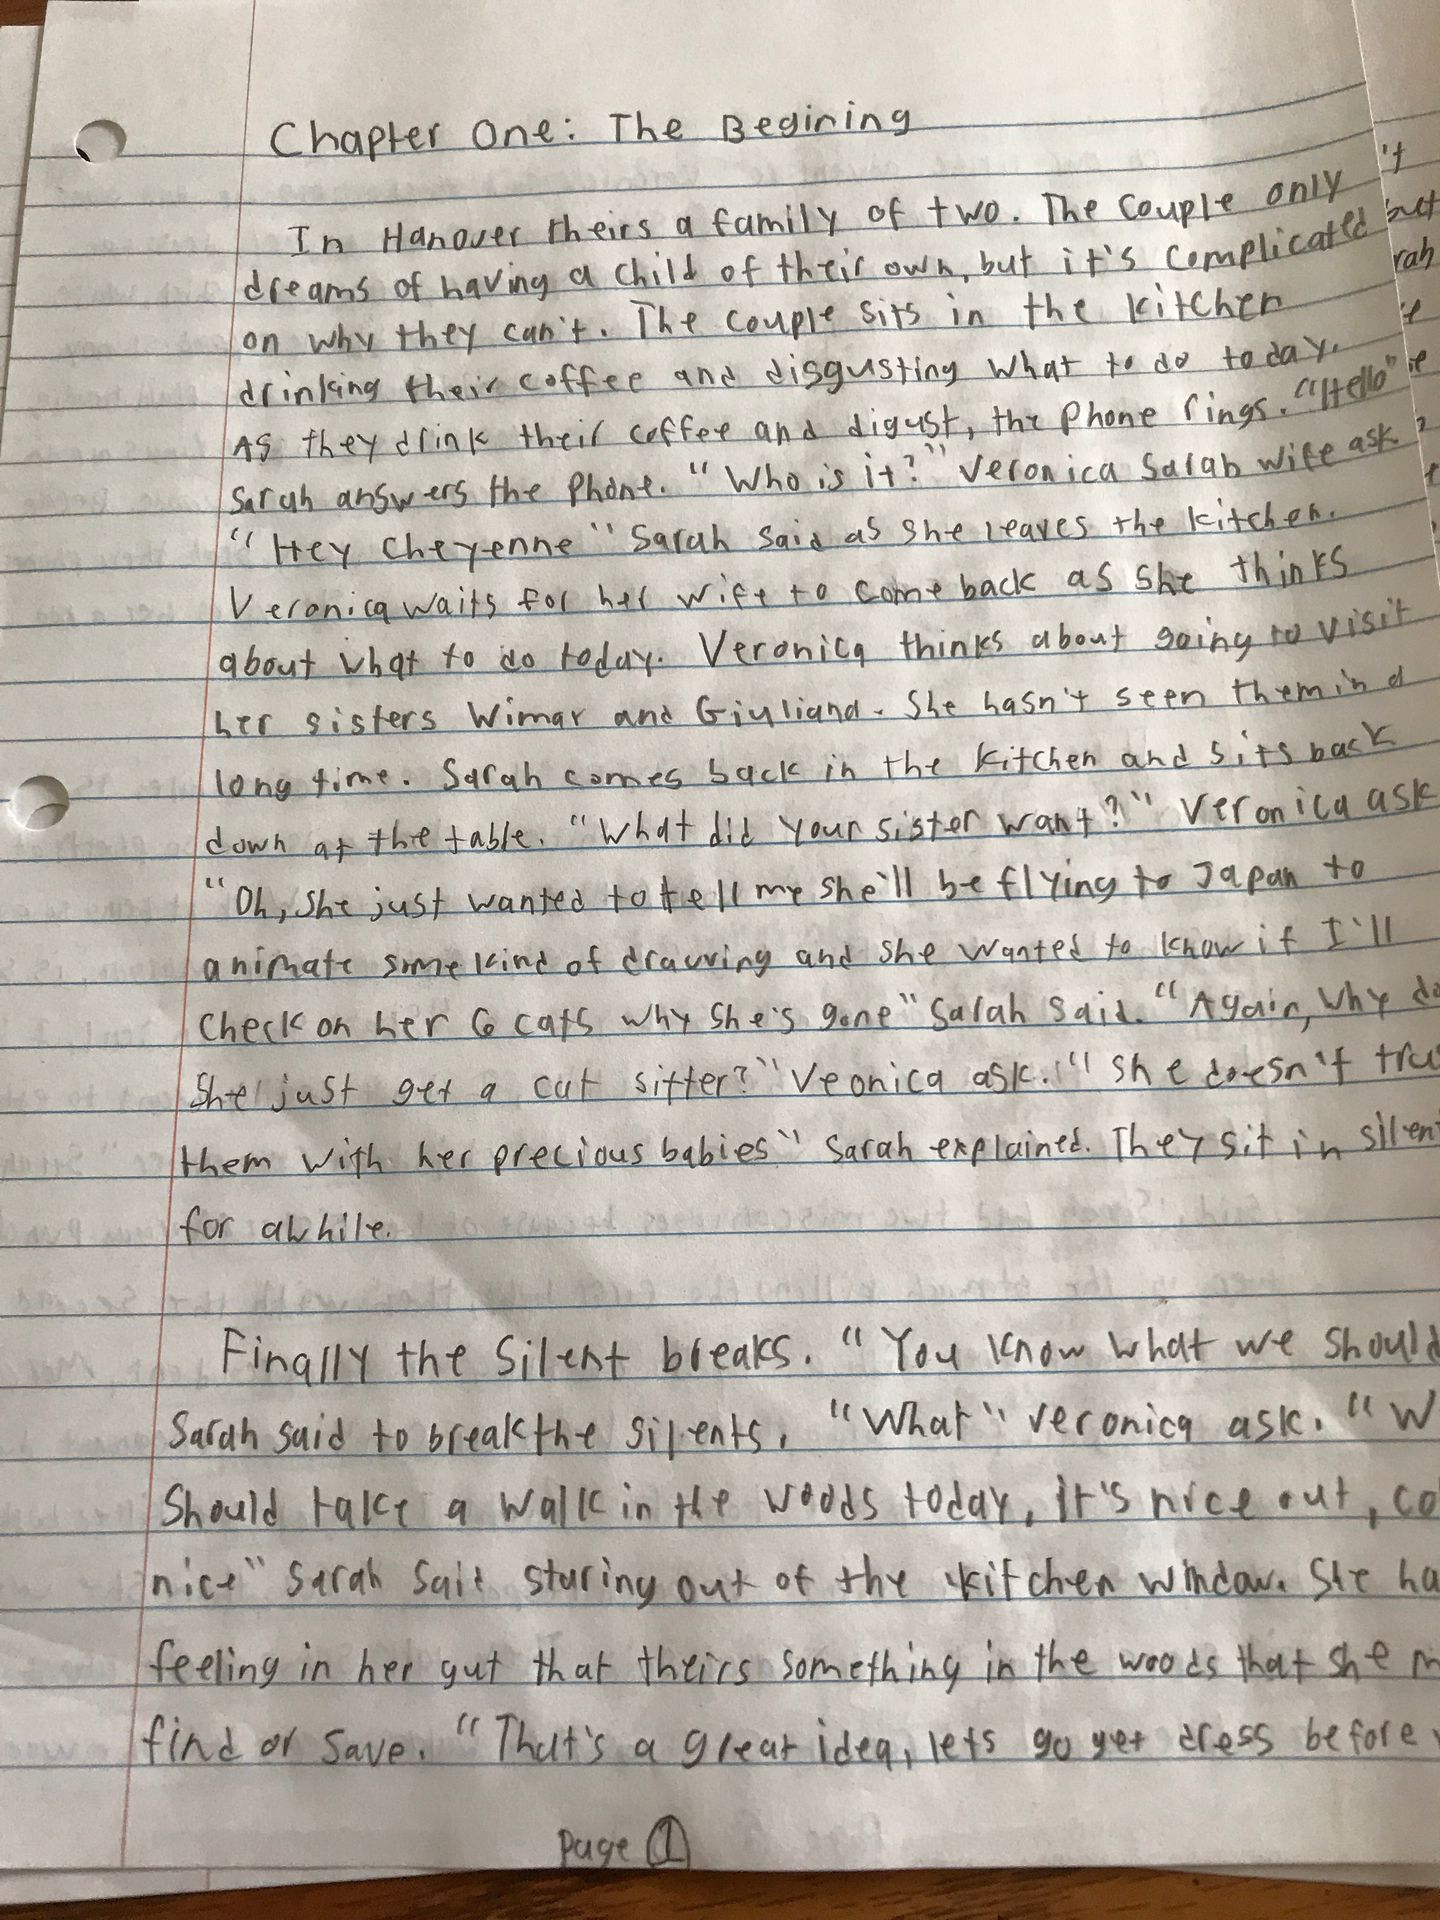 Chapter One: The Begining
In Hanover theirs a family of two. The couple only
dreams of having a child of their own, but it's complicated
on why they can't. The couple sits in the kitchen
drinking their coffee and disgusting what to do today.
As they drink their coffee and digust, the phone rings. "Hello"
Sarah answers the phone. "Who is it?" Veronica Sarah wife ask
"Hey Cheyenne" Sarah said as she leaves the kitchen.
Veronica waits for her wife to come back as she thinks
about what to do today. Veronica thinks about going to visit
her sisters Wimar and Giuliana. She hasn't seen them in a
long time. Sarah comes back in the kitchen and sits back
down at the table. "What did your sister want?" Veronica ask
"Oh, she just wanted to tell me she'll be flying to Japan to
animate some kind of drawing and she wanted to know if I'll
check on her 6 cats why she's gone" Sarah said. "Again, why do
she just get a cat sitter?" Veonica ask. "She doesn't tru
them with her precious babies" Sarah explained. They sit in silent
for awhile.
Finally the silent breaks. "You know what we should
Sarah said to break the silents. "What" Veronica ask. "W
Should take a walk in the woods today, it's nice out, co
nice" Sarah said staring out of the kitchen window. She ha
feeling in her gut that theirs something in the woods that she m
find or save. "That's a great idea, lets go get dress before
Page 1
't
but
rah